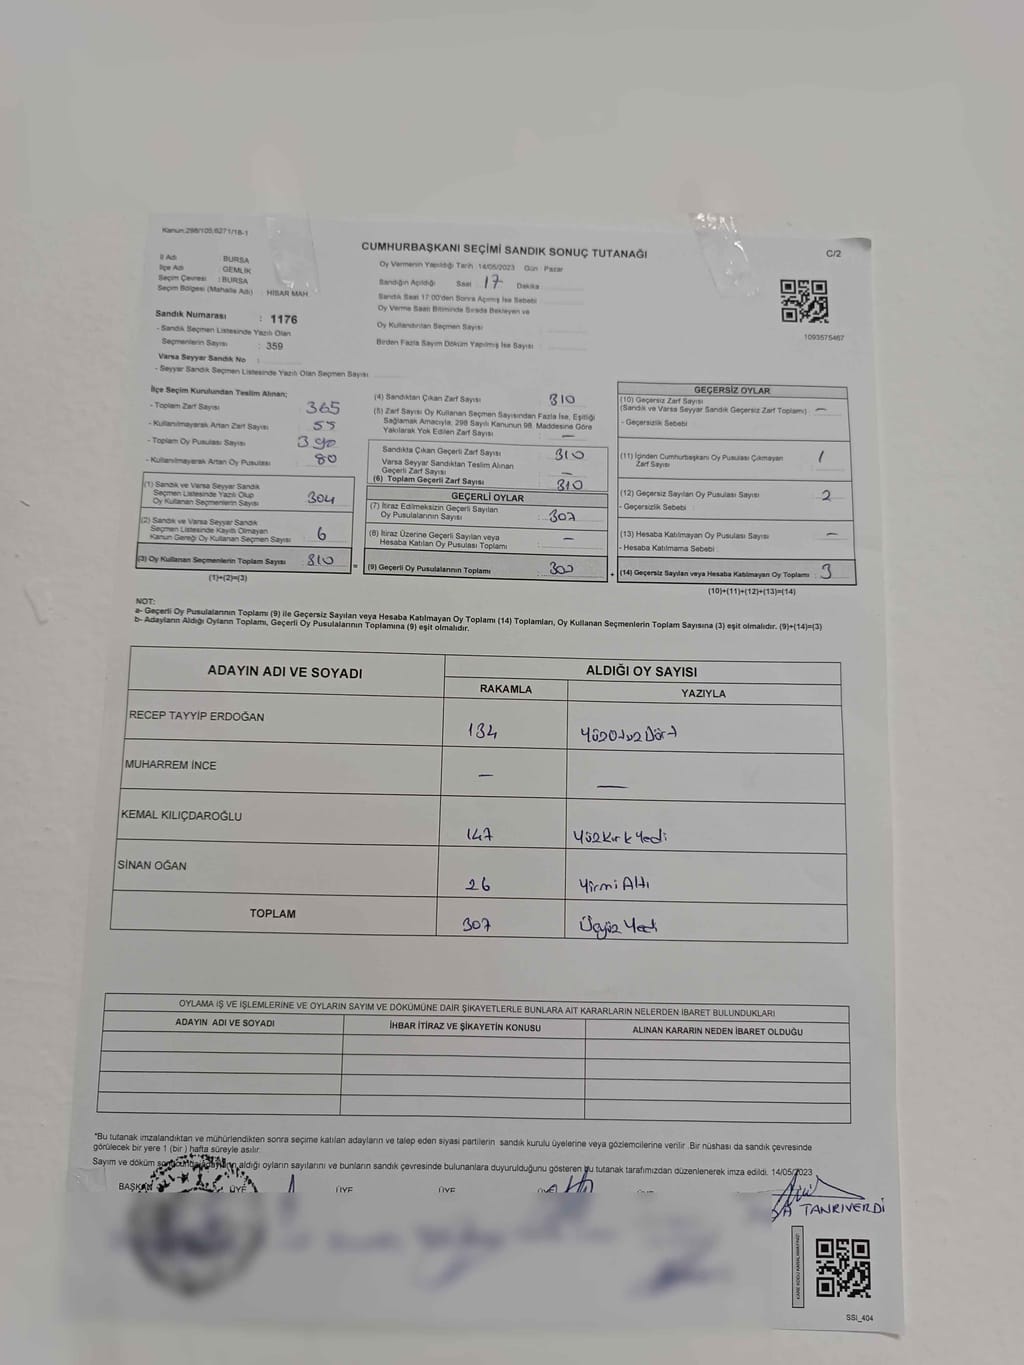 Kanun:298/103,6271/18-1
CUMHURBAŞKANI SEÇİMİ SANDIK SONUÇ TUTANAĞI
C/2
İl Adı : BURSA
İlçe Adı : GEMLİK
Seçim Çevresi : BURSA
Seçim Bölgesi (Mahalle Adı) : HİSAR MAH
Oy Vermenin Yapıldığı Tarih :14/05/2023 Gün : Pazar
Sandığın Açıldığı Saat : 17 Dakika
Sandık Saat 17:00'den Sonra Açılmış İse Sebebi
Oy Verme Saati Bitiminde Sırada Bekleyen ve
Oy Kullandırılan Seçmen Sayısı :
Birden Fazla Sayım Döküm Yapılmış İse Sayısı :
1093575467
Sandık Numarası : 1176
- Sandık Seçmen Listesinde Yazılı Olan
Seçmenlerin Sayısı : 359
Varsa Seyyar Sandık No :
- Seyyar Sandık Seçmen Listesinde Yazılı Olan Seçmen Sayısı
İlçe Seçim Kurulundan Teslim Alınan;
- Toplam Zarf Sayısı 365
- Kullanılmayarak Artan Zarf Sayısı 55
- Toplam Oy Pusulası Sayısı 390
- Kullanılmayarak Artan Oy Pusulası 80
(1) Sandık ve Varsa Seyyar Sandık
Seçmen Listesinde Yazılı Olup
Oy Kullanan Seçmenlerin Sayısı 304
(2) Sandık ve Varsa Seyyar Sandık
Seçmen Listesinde Kayıtlı Olmayan
Kanun Gereği Oy Kullanan Seçmen Sayısı 6
(3) Oy Kullanan Seçmenlerin Toplam Sayısı 310
(1)+(2)=(3)
(4) Sandıktan Çıkan Zarf Sayısı 310
(5) Zarf Sayısı Oy Kullanan Seçmen Sayısından Fazla İse, Eşitliği
Sağlamak Amacıyla, 298 Sayılı Kanunun 98. Maddesine Göre
Yakılarak Yok Edilen Zarf Sayısı : —
Sandıkta Çıkan Geçerli Zarf Sayısı : 310
Varsa Seyyar Sandıktan Teslim Alınan
Geçerli Zarf Sayısı : —
(6) Toplam Geçerli Zarf Sayısı : 310
GEÇERLİ OYLAR
(7) İtiraz Edilmeksizin Geçerli Sayılan
Oy Pusulalarının Sayısı : 307
(8) İtiraz Üzerine Geçerli Sayılan veya
Hesaba Katılan Oy Pusulası Toplamı : —
= (9) Geçerli Oy Pusulalarının Toplamı : 307
GEÇERSİZ OYLAR
(10) Geçersiz Zarf Sayısı
(Sandık ve Varsa Seyyar Sandık Geçersiz Zarf Toplamı) : —
- Geçersizlik Sebebi :
(11) İçinden Cumhurbaşkanı Oy Pusulası Çıkmayan
Zarf Sayısı : 1
(12) Geçersiz Sayılan Oy Pusulası Sayısı : 2
- Geçersizlik Sebebi :
(13) Hesaba Katılmayan Oy Pusulası Sayısı : —
- Hesaba Katılmama Sebebi :
+ (14) Geçersiz Sayılan veya Hesaba Katılmayan Oy Toplamı : 3
(10)+(11)+(12)+(13)=(14)
NOT:
a- Geçerli Oy Pusulalarının Toplamı (9) ile Geçersiz Sayılan veya Hesaba Katılmayan Oy Toplamı (14) Toplamları, Oy Kullanan Seçmenlerin Toplam Sayısına (3) eşit olmalıdır. (9)+(14)=(3)
b- Adayların Aldığı Oyların Toplamı, Geçerli Oy Pusulalarının Toplamına (9) eşit olmalıdır.
ADAYIN ADI VE SOYADI ALDIĞI OY SAYISI
RAKAMLA YAZIYLA
RECEP TAYYİP ERDOĞAN 134 YüzOtuzDört
MUHARREM İNCE — —
KEMAL KILIÇDAROĞLU 147 YüzKırkYedi
SİNAN OĞAN 26 YirmiAltı
TOPLAM 307 ÜçyüzYedi
OYLAMA İŞ VE İŞLEMLERİNE VE OYLARIN SAYIM VE DÖKÜMÜNE DAİR ŞİKAYETLERLE BUNLARA AİT KARARLARIN NELERDEN İBARET BULUNDUKLARI
ADAYIN ADI VE SOYADI İHBAR İTİRAZ VE ŞİKAYETİN KONUSU ALINAN KARARIN NEDEN İBARET OLDUĞU
*Bu tutanak imzalandıktan ve mühürlendikten sonra seçime katılan adayların ve talep eden siyasi partilerin sandık kurulu üyelerine veya gözlemcilerine verilir .Bir nüshası da sandık çevresinde
görülecek bir yere 1 (bir ) hafta süreyle asılır.
Sayım ve döküm aldığı oyların sayılarını ve bunların sandık çevresinde bulunanlara duyurulduğunu gösteren bu tutanak tarafımızdan düzenlenerek imza edildi. 14/05/2023
BAŞKAN ÜYE ÜYE ÜYE
TANRIVERDİ
SSI_404